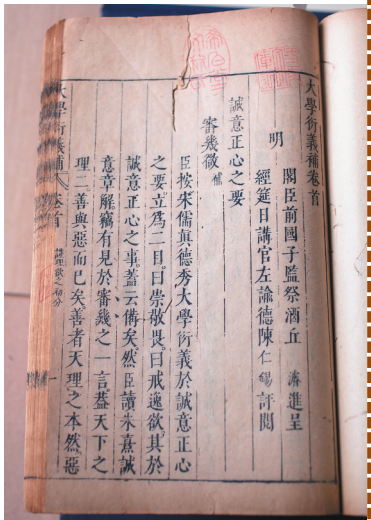 大學衍義補卷首
明
閣臣前國子監祭酒丘濬進呈
經筵日講官左諭德陳仁錫評閱
誠意正心之要
審幾微 補
臣按宋儒眞德秀大學衍義於誠意正心
之要立爲二目曰崇敬畏曰戒逸欲其於
誠意正心之事蓋云備矣然臣讀朱熹誠
意章解竊有見於審幾之一言蓋天下之
理二善與惡而已矣善者天理之本然惡
大學衍義補 卷首 謹理欲之初分